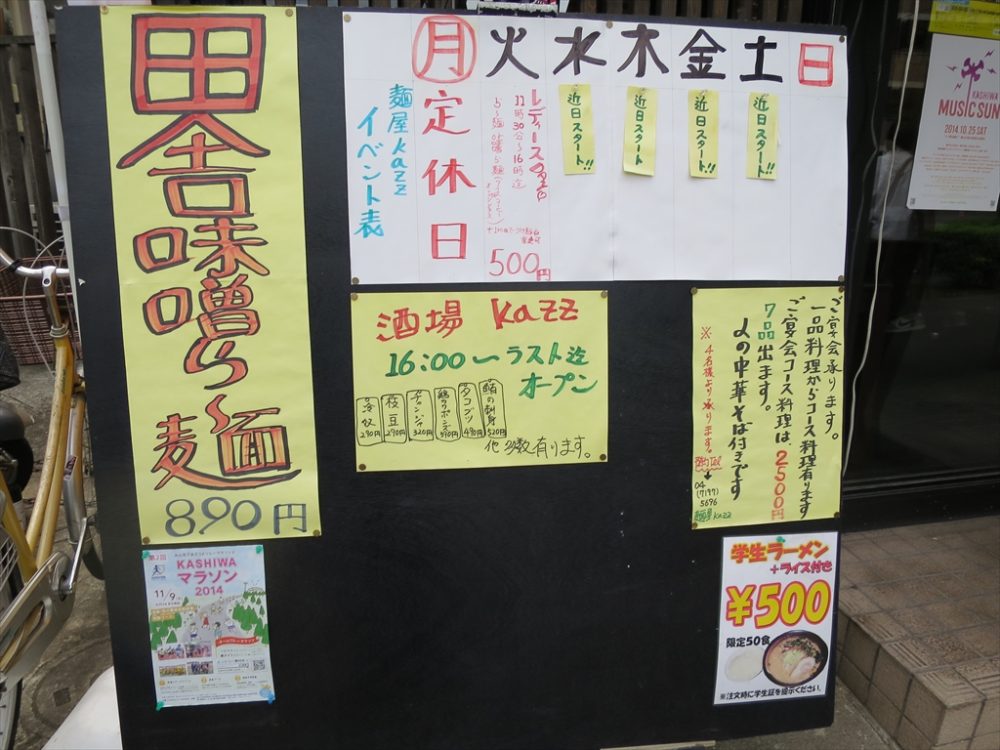 田舎味噌らーめん
麺
890円
月 火 水 木 金 土 日
麺屋kazz
イベント表
定休日
レディースの日
11時30分～16時迄
500円
近日スタート!!
近日スタート!!
近日スタート!!
近日スタート!!
酒場 kazz
16:00～ラスト迄
オープン
冷奴 290円
枝豆 290円
チャンジャ 320円
タコブツ 490円
鮪の刺身 520円
他 多数有ります。
ご宴会承ります。
一品料理からコース料理有ります
ご宴会コース料理は、2500円
7品出ます。
〆の中華そば付きです
※4名様より承ります。
予約Tel
04
(7197)
5696
麺屋kazz
学生ラーメン
+ライス付き
¥500
限定50食
※注文時に学生証を提示ください。
第2回
KASHIWA
マラソン
2014
11/9
KASHIWA
MUSICSUN
2014.10.25.SAT